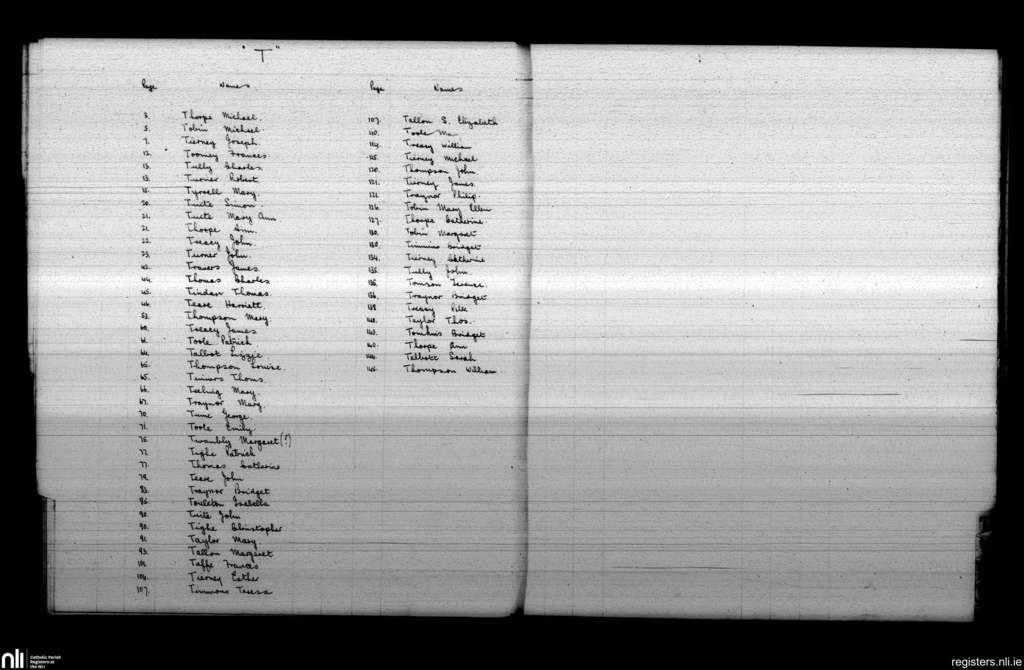 "T"
Page Names
3. Thorpe Michael.
5. Tobin Michael.
7. Tierney Joseph.
12. Toomey Frances.
13. Tully Charles.
13. Turner Robert
15. Tyrrell Mary.
20. Tuite Simon.
21. Tuite Mary Ann
21. Thorpe Ann.
22. Treacy John.
23. Turner John.
42. Travers James.
44. Thomas Charles
45. Tindan Thomas.
46. Tease Harriett.
52. Thompson Mary.
60. Treacy James
61. Toole Patrick
64. Talbot Lizzie.
65. Thompson Louise.
65. Timmons Thoms.
66. Mary.
67. Traynor Mary.
70. George.
71. Toole Emily.
75. Twambly Margaret (?)
77. Tighe Patrick
77. Thomas Catherine
79. Tease John
83. Traynor Bridget
86. Touleton Isabella
90. Tuite John
90. Tighe Christopher
91. Taylor Mary.
93. Tallon Margaret
101. Taffe Frances
104. Tierney Esther
107. Timmons Teresa
Page Names
107. Tallon S. Elizabeth
110. Toole Ma
114. Treacy William
115. Tierney Michael
120. Thompson John.
121. Tierney James.
121. Traynor Philip.
126. Tobin Mary Ellen
127. Thorpe Catherine.
130. Tobin Margaret
130. Timmins Bridget
134. Tierney Catherine
135. Tully John.
135. Tomson Terence.
136. Traynor Bridget
138 Treacy
140. Taylor Thos.
143. Tomkins Bridget
143. Thorpe Ann
144. Talbott Sarah
145. Thompson William
nli Catholic Parish
Registers at
the NLI
registers.nli.ie